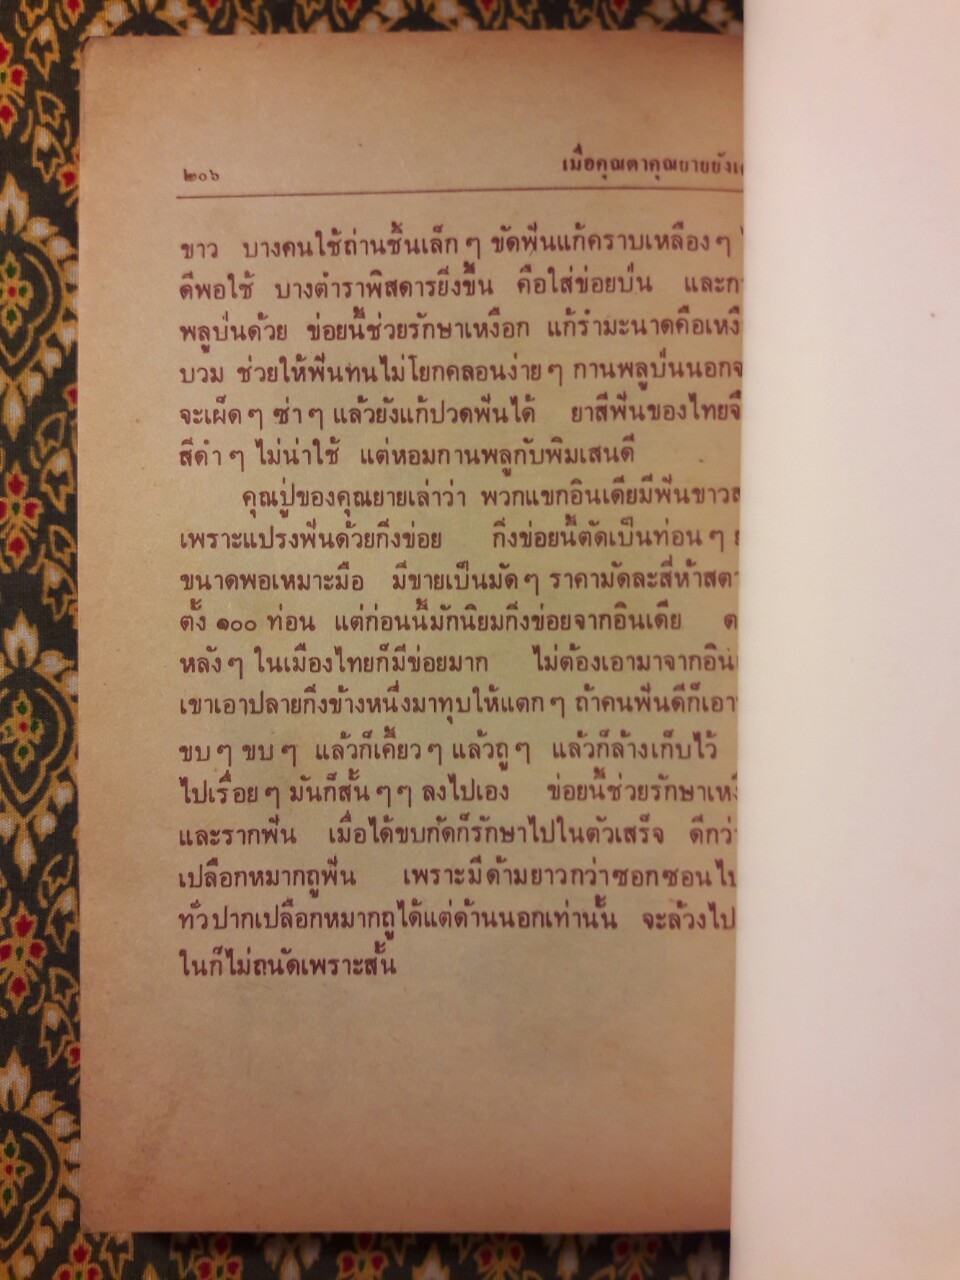 ๒๐๖ เมื่อคุณตาคุณยายยัง
ขาว บางคนใช้ถ่านชิ้นเล็ก ๆ ขัดฟันแก้คราบเหลือง ๆ
ดีพอใช้ บางตำราพิสดารยิ่งขึ้น คือใส่ข่อยป่น และ
พลูป่นด้วย ข่อยนี้ช่วยรักษาเหงือก แก้รำมะนาดคือ
บวม ช่วยให้ฟันทนไม่โยกคลอนง่าย ๆ กานพลูป่นนอก
จะเผ็ด ๆ ซ่า ๆ แล้วยังแก้ปวดฟันได้ ยาสีฟันของไทย
สีดำ ๆ ไม่น่าใช้ แต่หอมกานพลูกับพิมเสนดี
คุณปู่ของคุณยายเล่าว่า พวกแขกอินเดียมีฟันขาว
เพราะแปรงฟันด้วยกิ่งข่อย กิ่งข่อยนี้ตัดเป็นท่อน ๆ
ขนาดพอเหมาะมือ มีขายเป็นมัด ๆ ราคามัดละสี่ห้า
ตั้ง ๑๐๐ ท่อน แต่ก่อนนี้มักนิยมกิ่งข่อยจากอินเดีย
หลัง ๆ ในเมืองไทยก็มีข่อยมาก ไม่ต้องเอามาจาก
เขาเอาปลายกิ่งข้างหนึ่งมาทุบให้แตก ๆ ถ้าคนฟันดีก็เอา
ขบ ๆ ขบ ๆ แล้วก็เคี้ยว ๆ แล้วถู ๆ แล้วก็ล้างเก็บไว้
ไปเรื่อย ๆ มันก็สั้น ๆ ๆ ลงไปเอง ข่อยนี้ช่วยรักษา
และรากฟัน เมื่อได้ขบกัดก็รักษาไปในตัวเสร็จ
เปลือกหมากถูฟัน เพราะมีด้ามยาวกว่าซอกซอน
ทั่วปากเปลือกหมากถูได้แต่ด้านนอกเท่านั้น จะล้วงไป
ในก็ไม่ถนัดเพราะสั้น